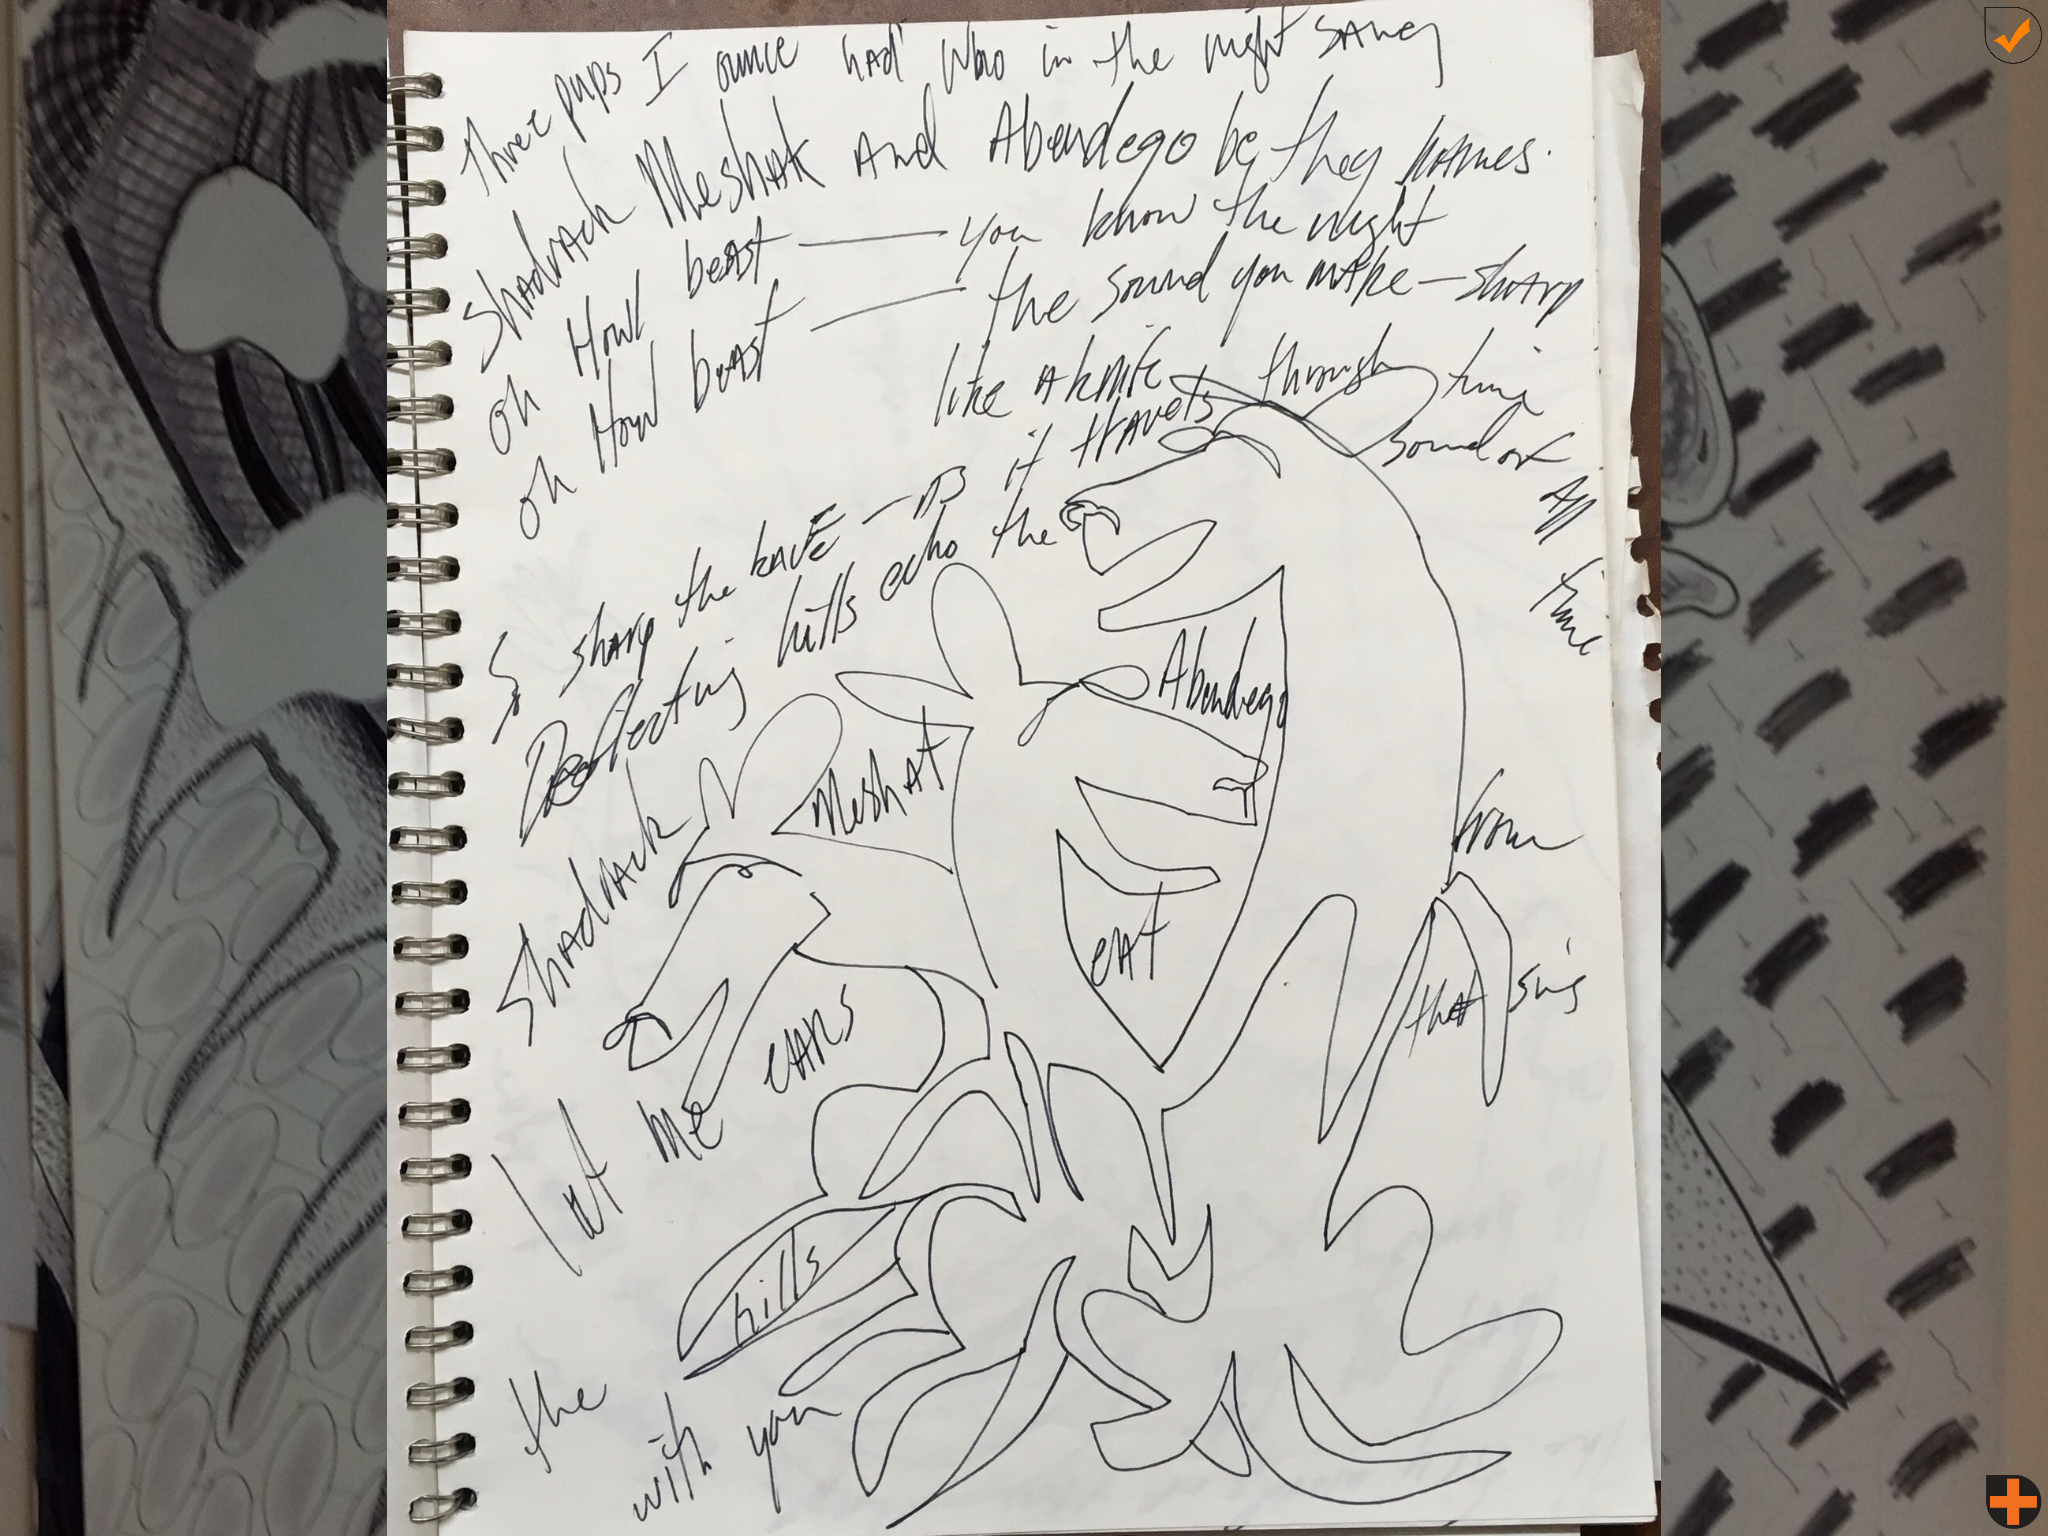 Three pups I ounce had who in the night sang
Shadrack Meshak And Abendego be they names.
oh Howl beast — you know the night
oh Howl beast — the sound you make — sharp
like a knife through time
So sharp the knife — as it travels sound of All time
Deflecting hills echo the
Shadrack Meshak Abendego from
Let me ears eat that sing
the hills
with you